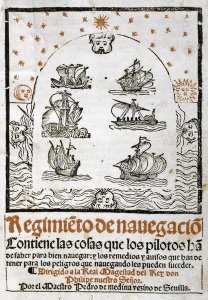 Regimiēto de nauegaciō
Contiene las cosas que los pilotos hā
de saber para bien nauegar: y los remedios y auisos que han de
tener para los peligros que nauegando les pueden suceder.
Dirigido a la Real Magestad del Rey don
Philipe nuestro Señor.
Por el Maestro Pedro de medina vezino de Seuilla.